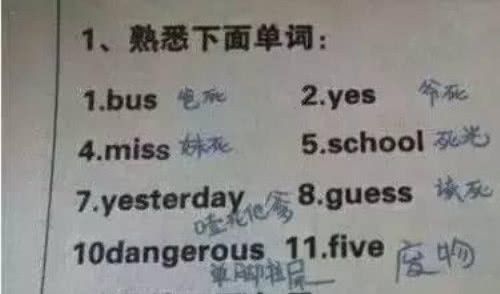 1、熟悉下面单词:
1.bus 爸死 2.yes 爷死
4.miss 妹死 5.school 死光
7.yesterday 8.guess 该死
他爹
10dangerous 11.five 废物
单脚拉